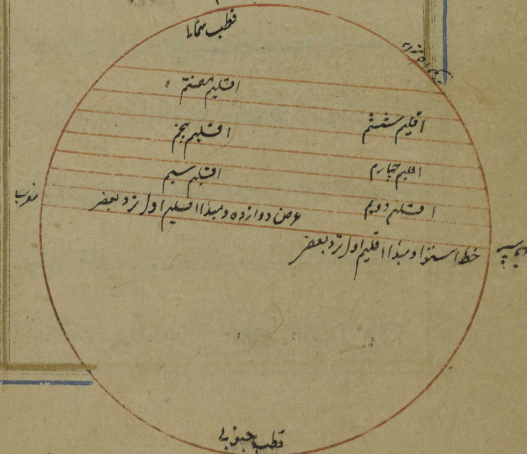 قطب شمالی
اقلیم هفتم
اقلیم ششم
اقلیم پنجم
اقلیم چهارم
اقلیم سیم
اقلیم دویم
عرض دوازده و مبدا اقلیم اول نزد بعضی
مغرب
خط استوا و مبدا اقلیم اول نزد بعضی
قطب جنوبی